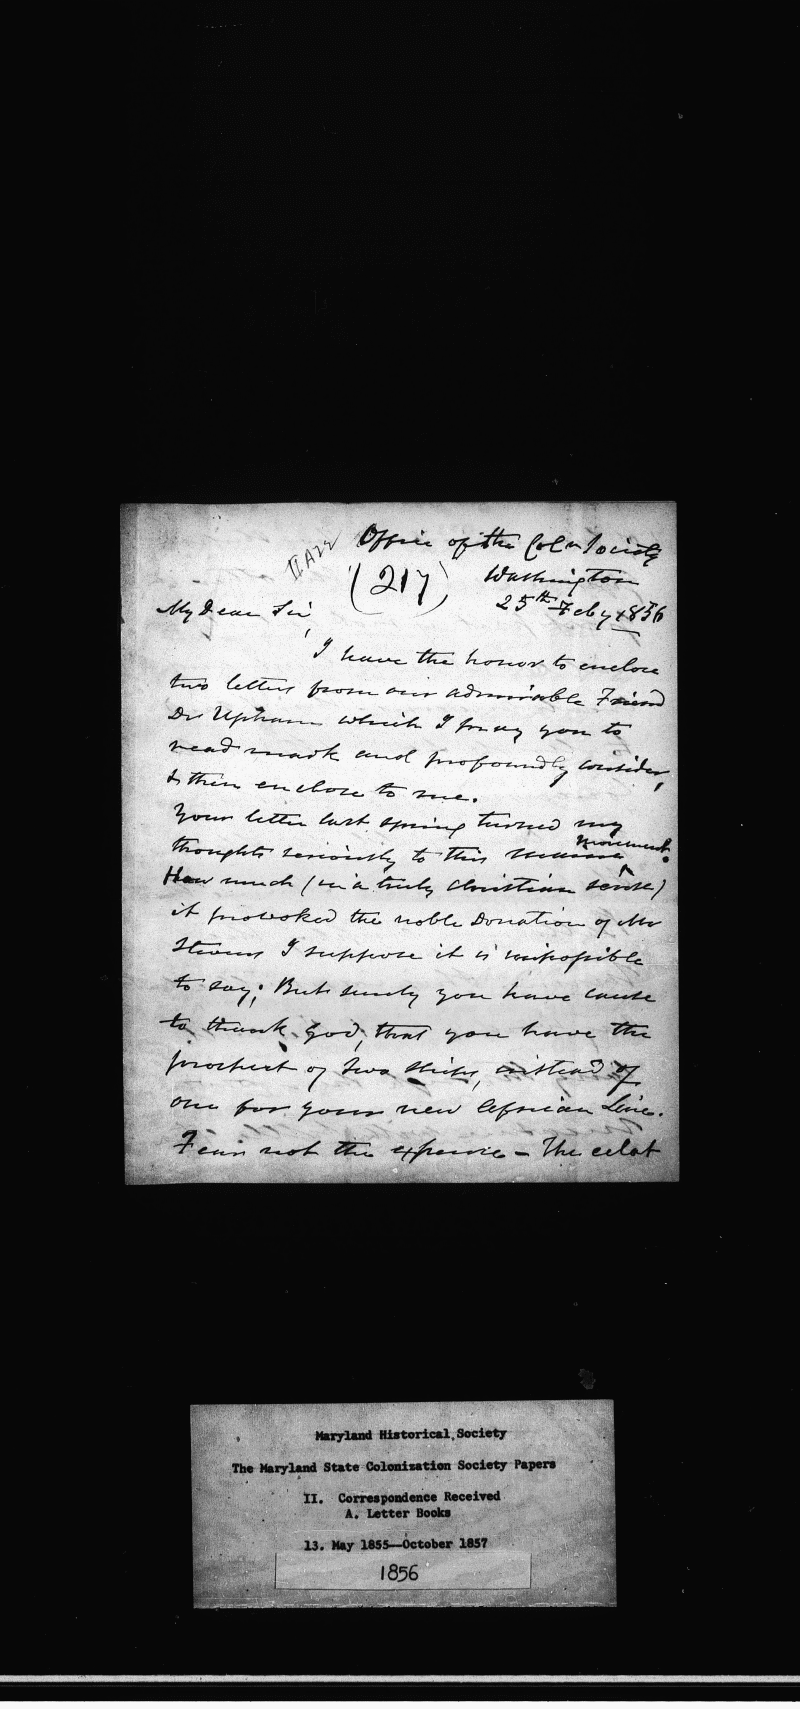 Office of the Coln Society
IIA22
(217)
Washington
25th Feby 1856
My Dear Sir,
I have the honor to enclose
two letters from our admirable Friend
Dr Upham which I pray you to
read mark and profoundly consider,
& then enclose to me.
Your letter last spring turned my
thoughts seriously to this
movement.
How much (in a truly christian sense)
it provoked the noble Donation of Mr
Stevens I suppose it is impossible
to say; But surely you have cause
to thank God, that you have the
prospect of two ships, instead of
one for your new African Line.
Fear not the expense — The eclat
Maryland Historical Society
The Maryland State Colonization Society Papers
II. Correspondence Received
A. Letter Books
13. May 1855—October 1857
1856